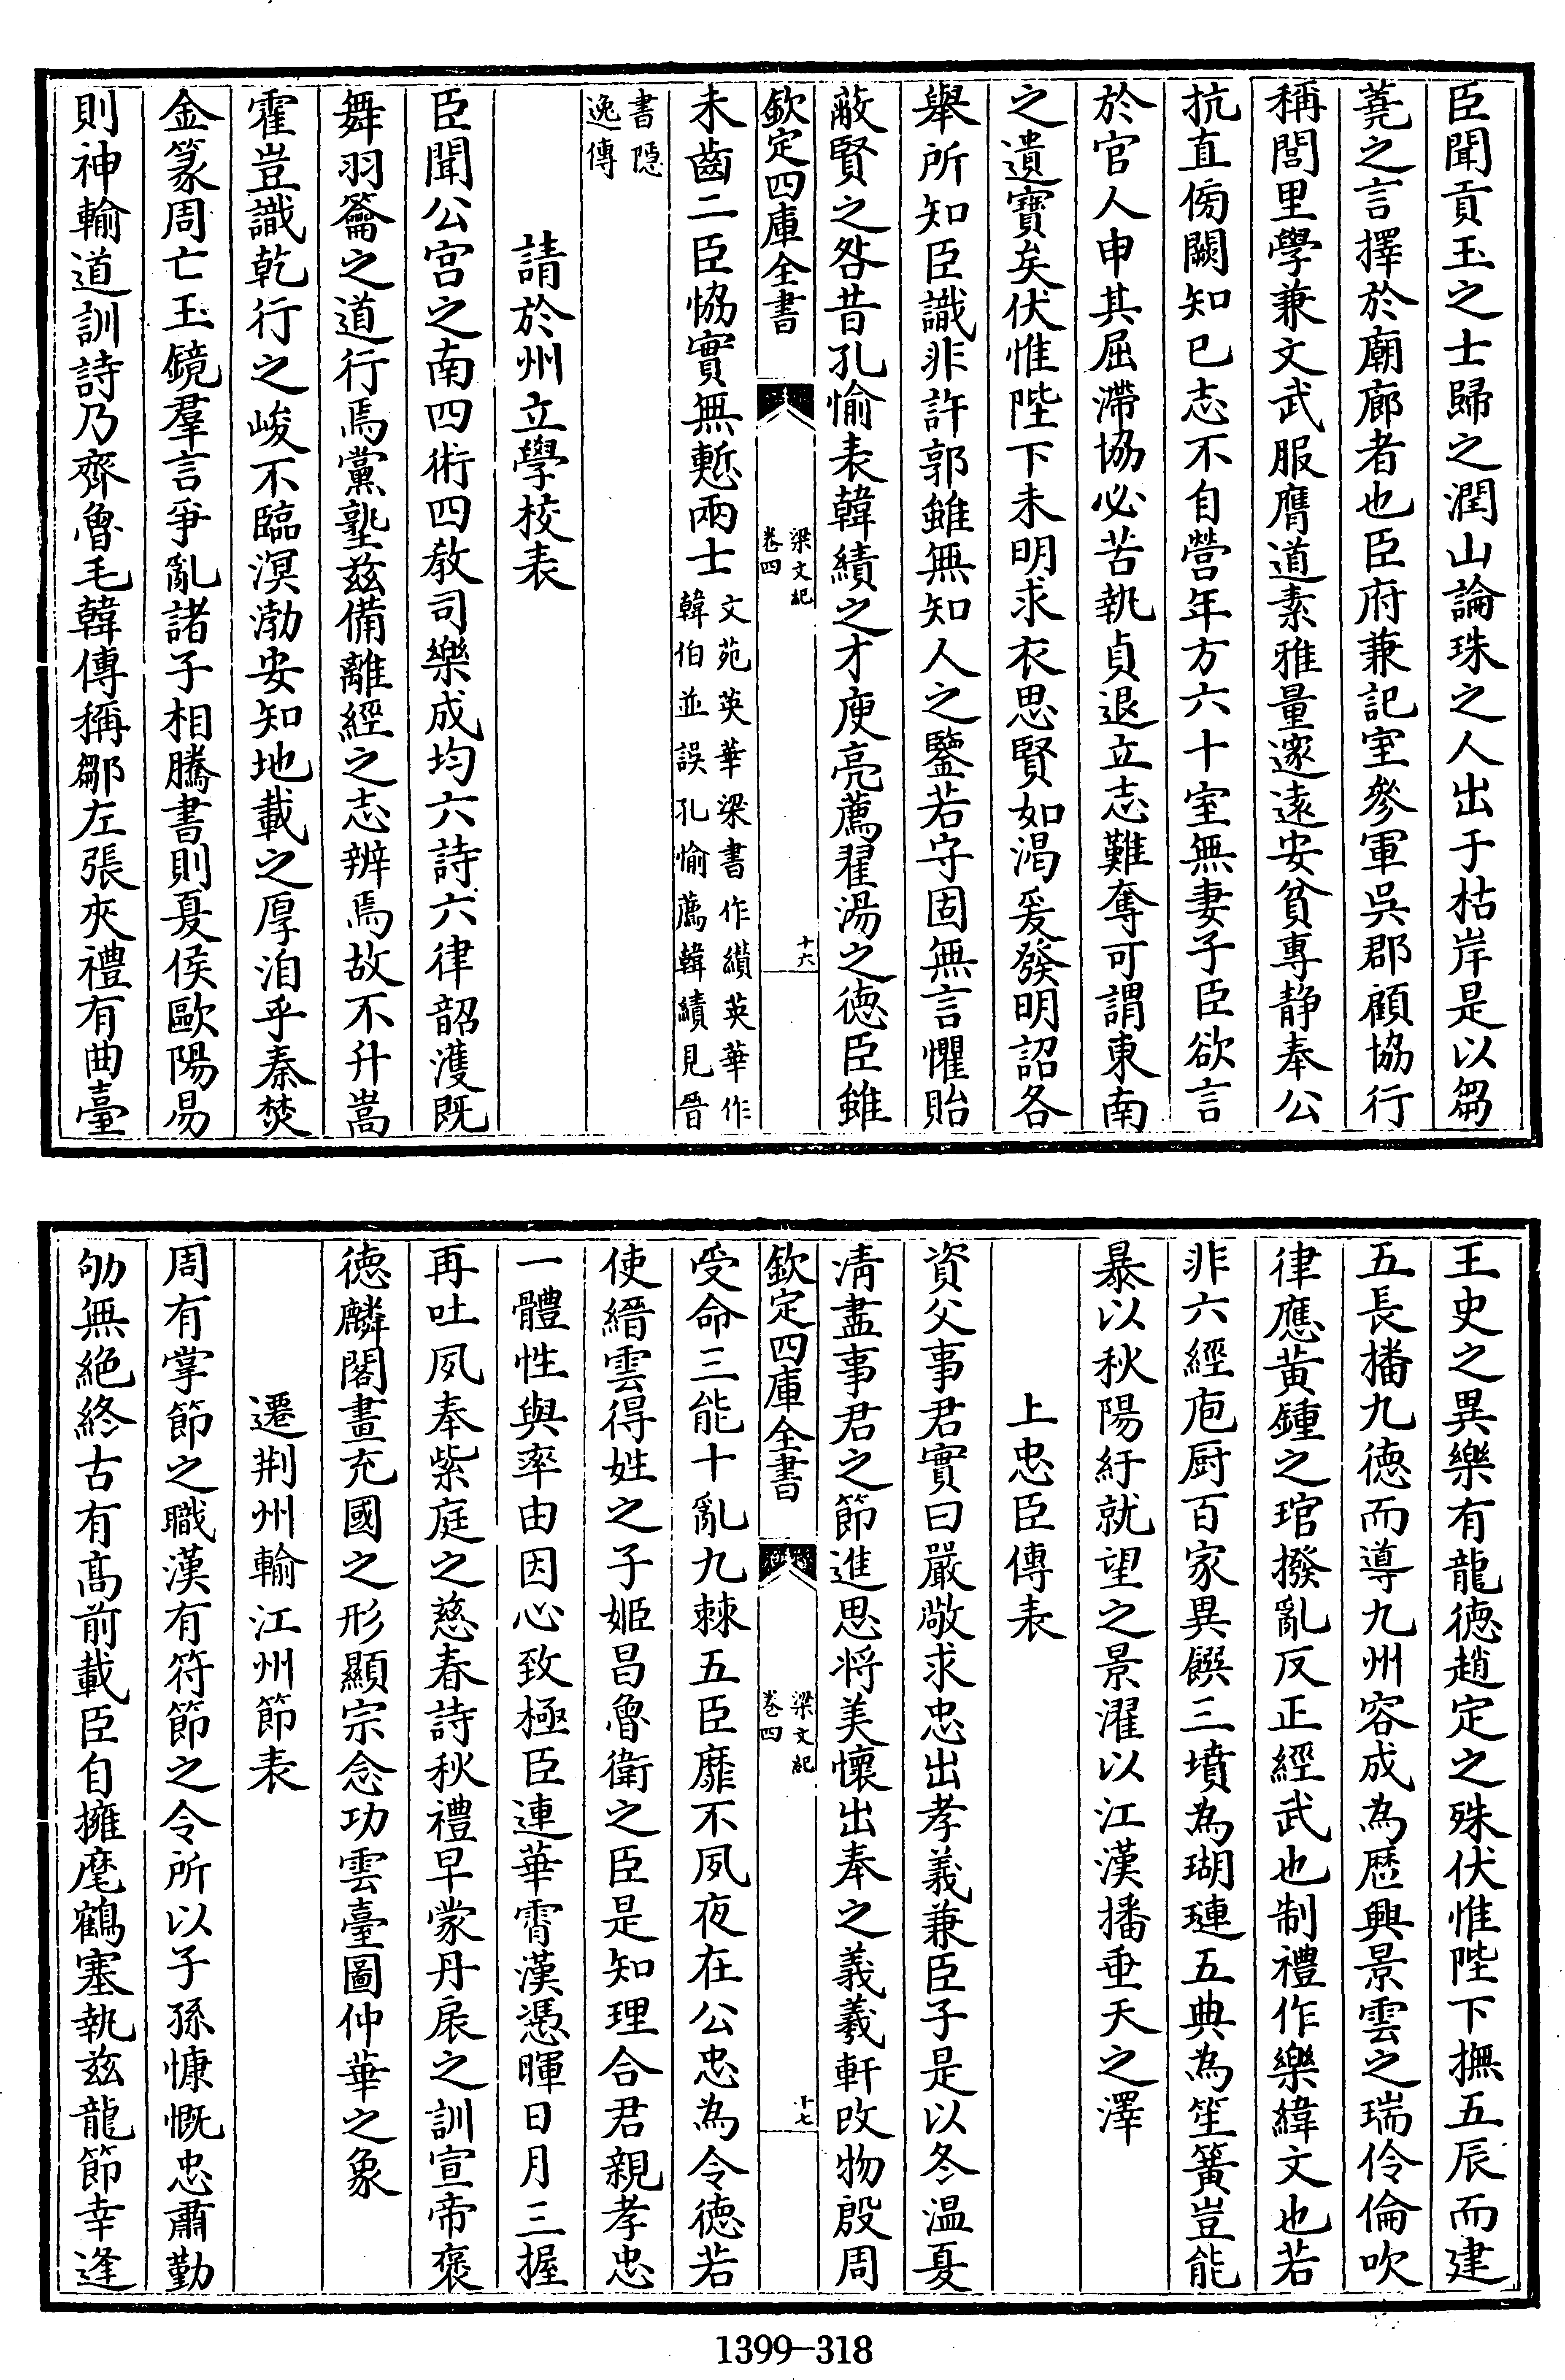 臣聞貢玉之士歸之潤山論珠之人出于枯岸是以芻
蕘之言擇於廟廊者也臣府兼記室參軍吳郡顧協行
稱閭里學兼文武服膺道素雅量邃遠安貧專静奉公
抗直傍闕知已志不自營年方六十室無妻子臣欲言
於官人申其屈滯協必苦執貞退立志難奪可謂東南
之遺寳矣伏惟陛下未明求衣思賢如渴爰發明詔各
舉所知臣識非許郭雖無知人之鑒若守固無言懼貽
蔽賢之咎昔孔愉表韓績之才庾亮薦翟湯之徳臣雖
欽定四庫全書
梁文紀
卷四
十六
未齒二臣恊實無慙兩士
文苑英華梁書作纘英華作
韓伯並誤孔愉薦韓績見晉
書隱
逸傳
請於州立學校表
臣聞公宫之南四術四教司樂成均六詩六律韶濩既
舞羽籥之道行焉黨塾兹備離經之志辨焉故不升嵩
霍豈識乾行之峻不臨溟渤安知地載之厚洎乎秦焚
金篆周亡玉鏡羣言爭亂諸子相騰書則夏侯歐陽易
則神輸道訓詩乃齊魯毛韓傳稱鄒左張夾禮有曲臺
王史之異樂有龍徳趙定之殊伏惟陛下撫五辰而建
五長播九徳而導九州容成為厯興景雲之瑞伶倫吹
律應黄鍾之琯撥亂反正經武也制禮作樂緯文也若
非六經庖厨百家異饌三墳為瑚璉五典為笙簧豈能
暴以秋陽紆就望之景濯以江漢播垂天之澤
上忠臣傳表
資父事君實曰嚴敬求忠出孝義兼臣子是以冬温夏
清盡事君之節進思將美懷出奉之義羲軒改物殷周
欽定四庫全書
梁文紀
卷四
十七
受命三能十亂九棘五臣靡不夙夜在公忠為令徳若
使縉雲得姓之子姬昌魯衛之臣是知理合君親孝忠
一體性與率由因心致極臣連華霄漢憑暉日月三握
再吐夙奉紫庭之慈春詩秋禮早蒙丹扆之訓宣帝褒
徳麟閣畫充國之形顯宗念功雲臺圖仲華之象
遷荆州輸江州節表
周有掌節之職漢有符節之令所以子孫慷慨忠肅勤
劬無絶終古有髙前載臣自擁麾鶴塞執兹龍節幸逢
1399-318